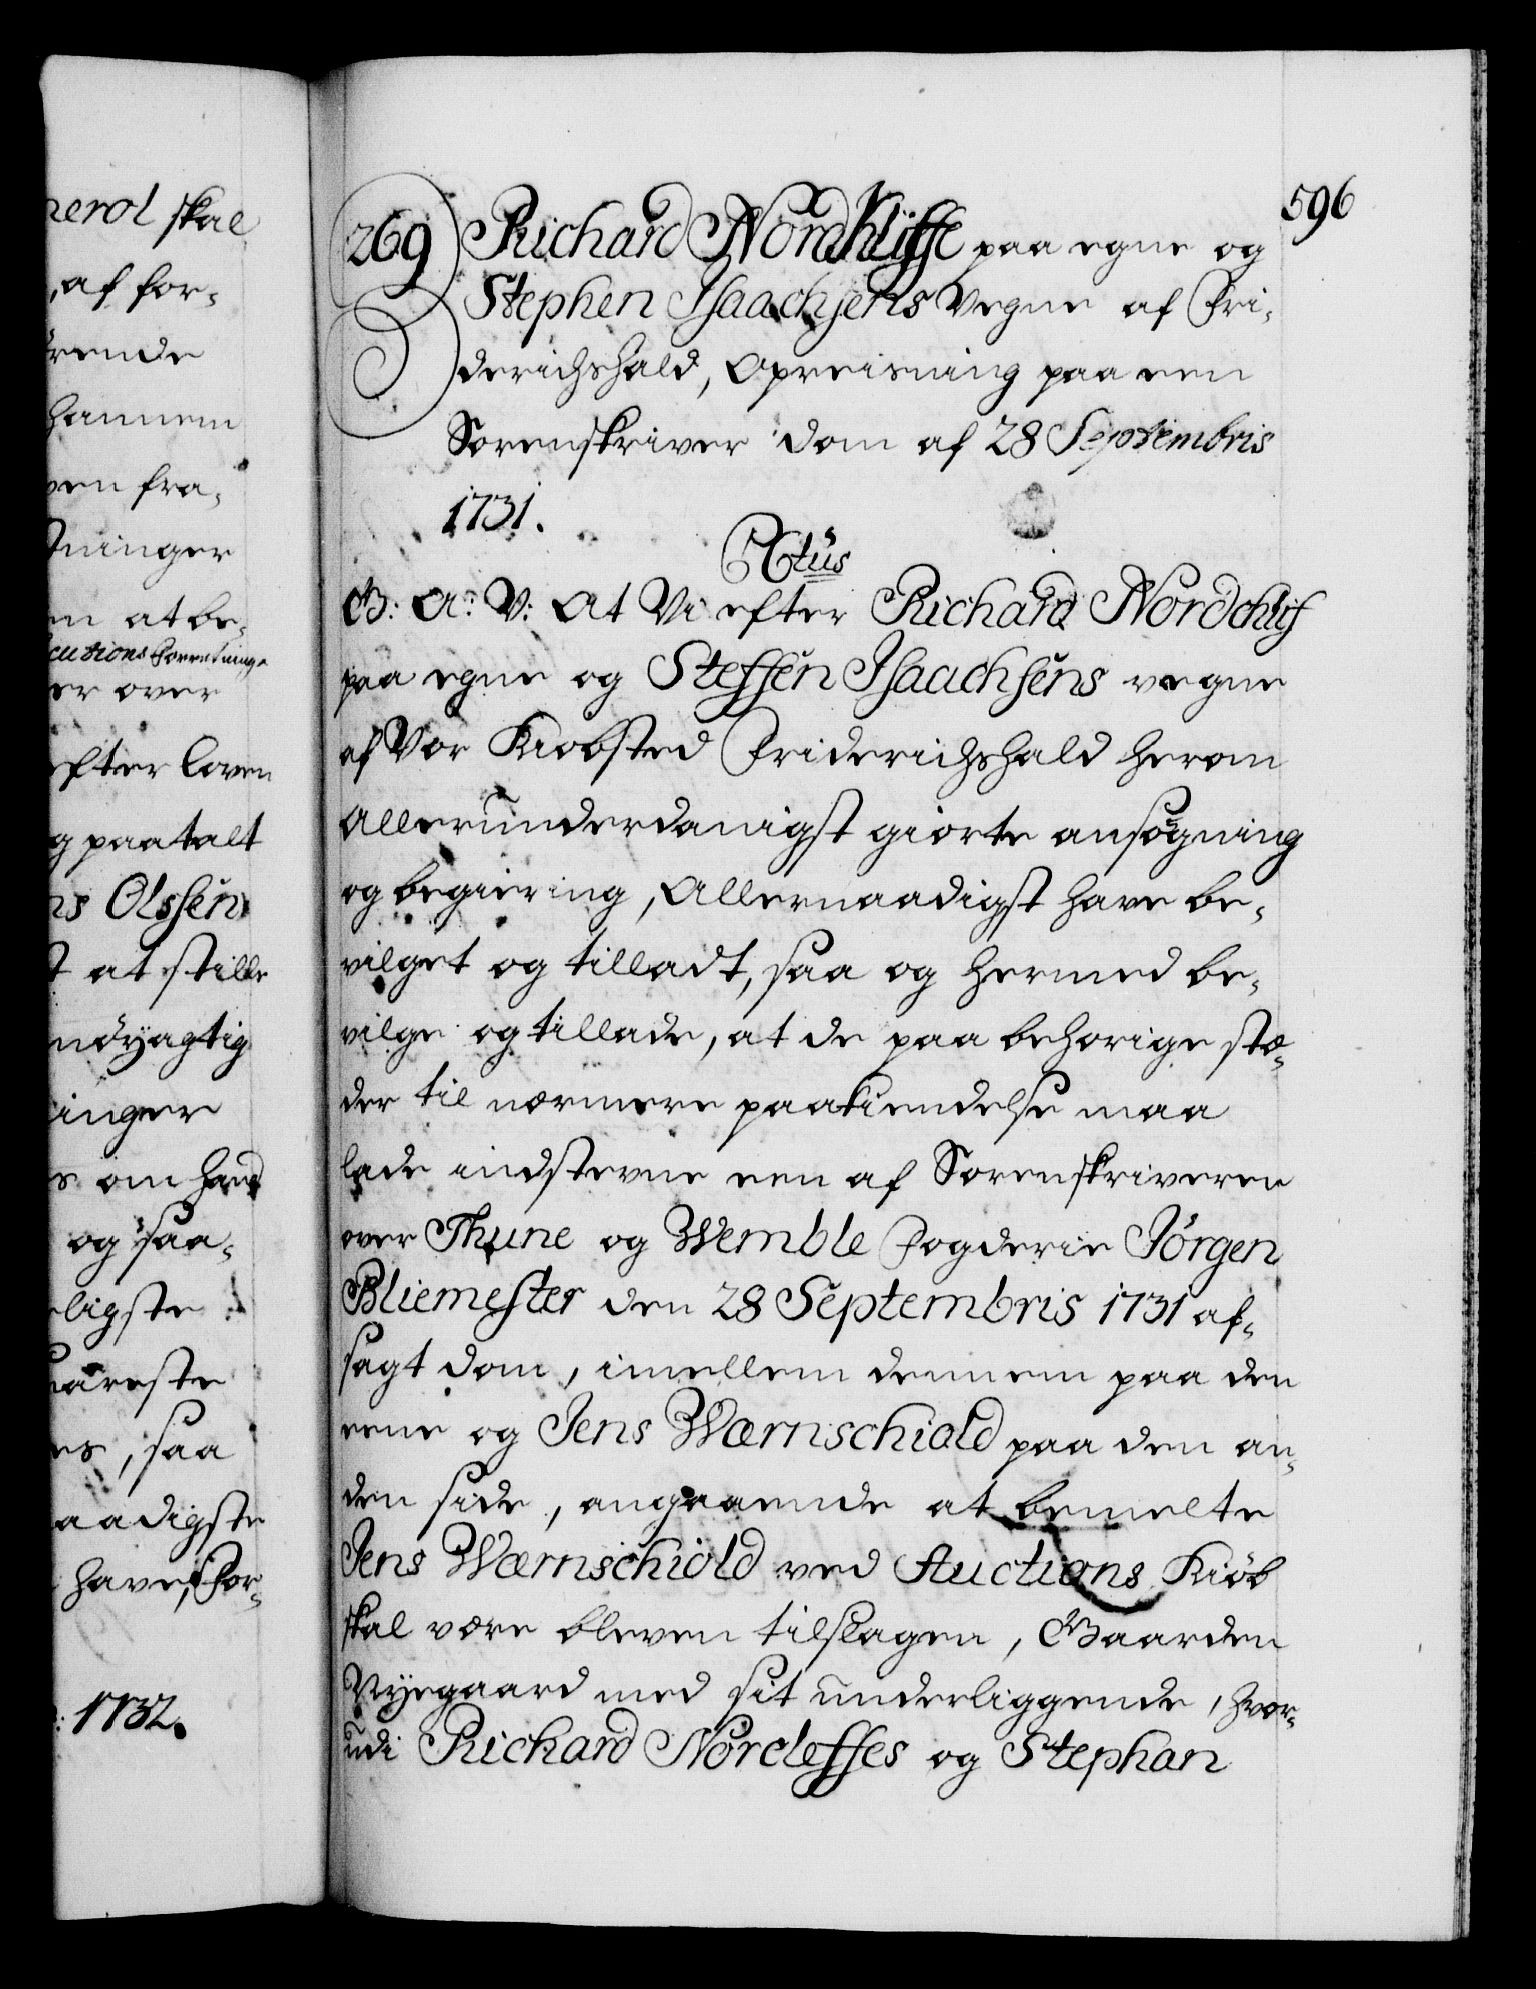 nerol skal
, af for-
rende
hannem
ven fra-
tninger
em at be-
cutions Forretning-
er over
efter Loven
g paatalt
ns Olssen
t at stille
nöyagtig
inger
s om hand
og saa-
ligste
areste
es, saa
aadigste
have, For-
: 1732.
596
269 Richard Nordkliffe paa egne og
Stephen Isaachsens vegne af Fri-
derichshald, Opreisning paa een
Sorenskriver dom af 28 Septembris
1731.
Ctus
G: A: V: At Vi efter Richard Nordchlif
paa egne og Steffen Isaachsens vegne
af Vor Kiobsted Friderichshald herom
allerunderdanigst giorte ansögning
og begiering, Allernaadigst have be-
vilget og tilladt, saa og hermed be-
vilge og tillade, at de paa behorige stæ-
der til nærmere paakiendelse maa
lade indstevne een af Sorenskriveren
over Thune og Wemble Fogderie Jörgen
Bliemester den 28 Septembris 1731 af-
sagt dom, imellem dennem paa den
eene og Jens Wærnschiold paa den an-
den side, angaaende at bemelte
Jens Wærnschiold ved Auctions Kiöb
skal være bleven tilslagen, Gaarden
Nyegaard med sit underliggende, hvor-
udi Richard Norcleffes og Stephan